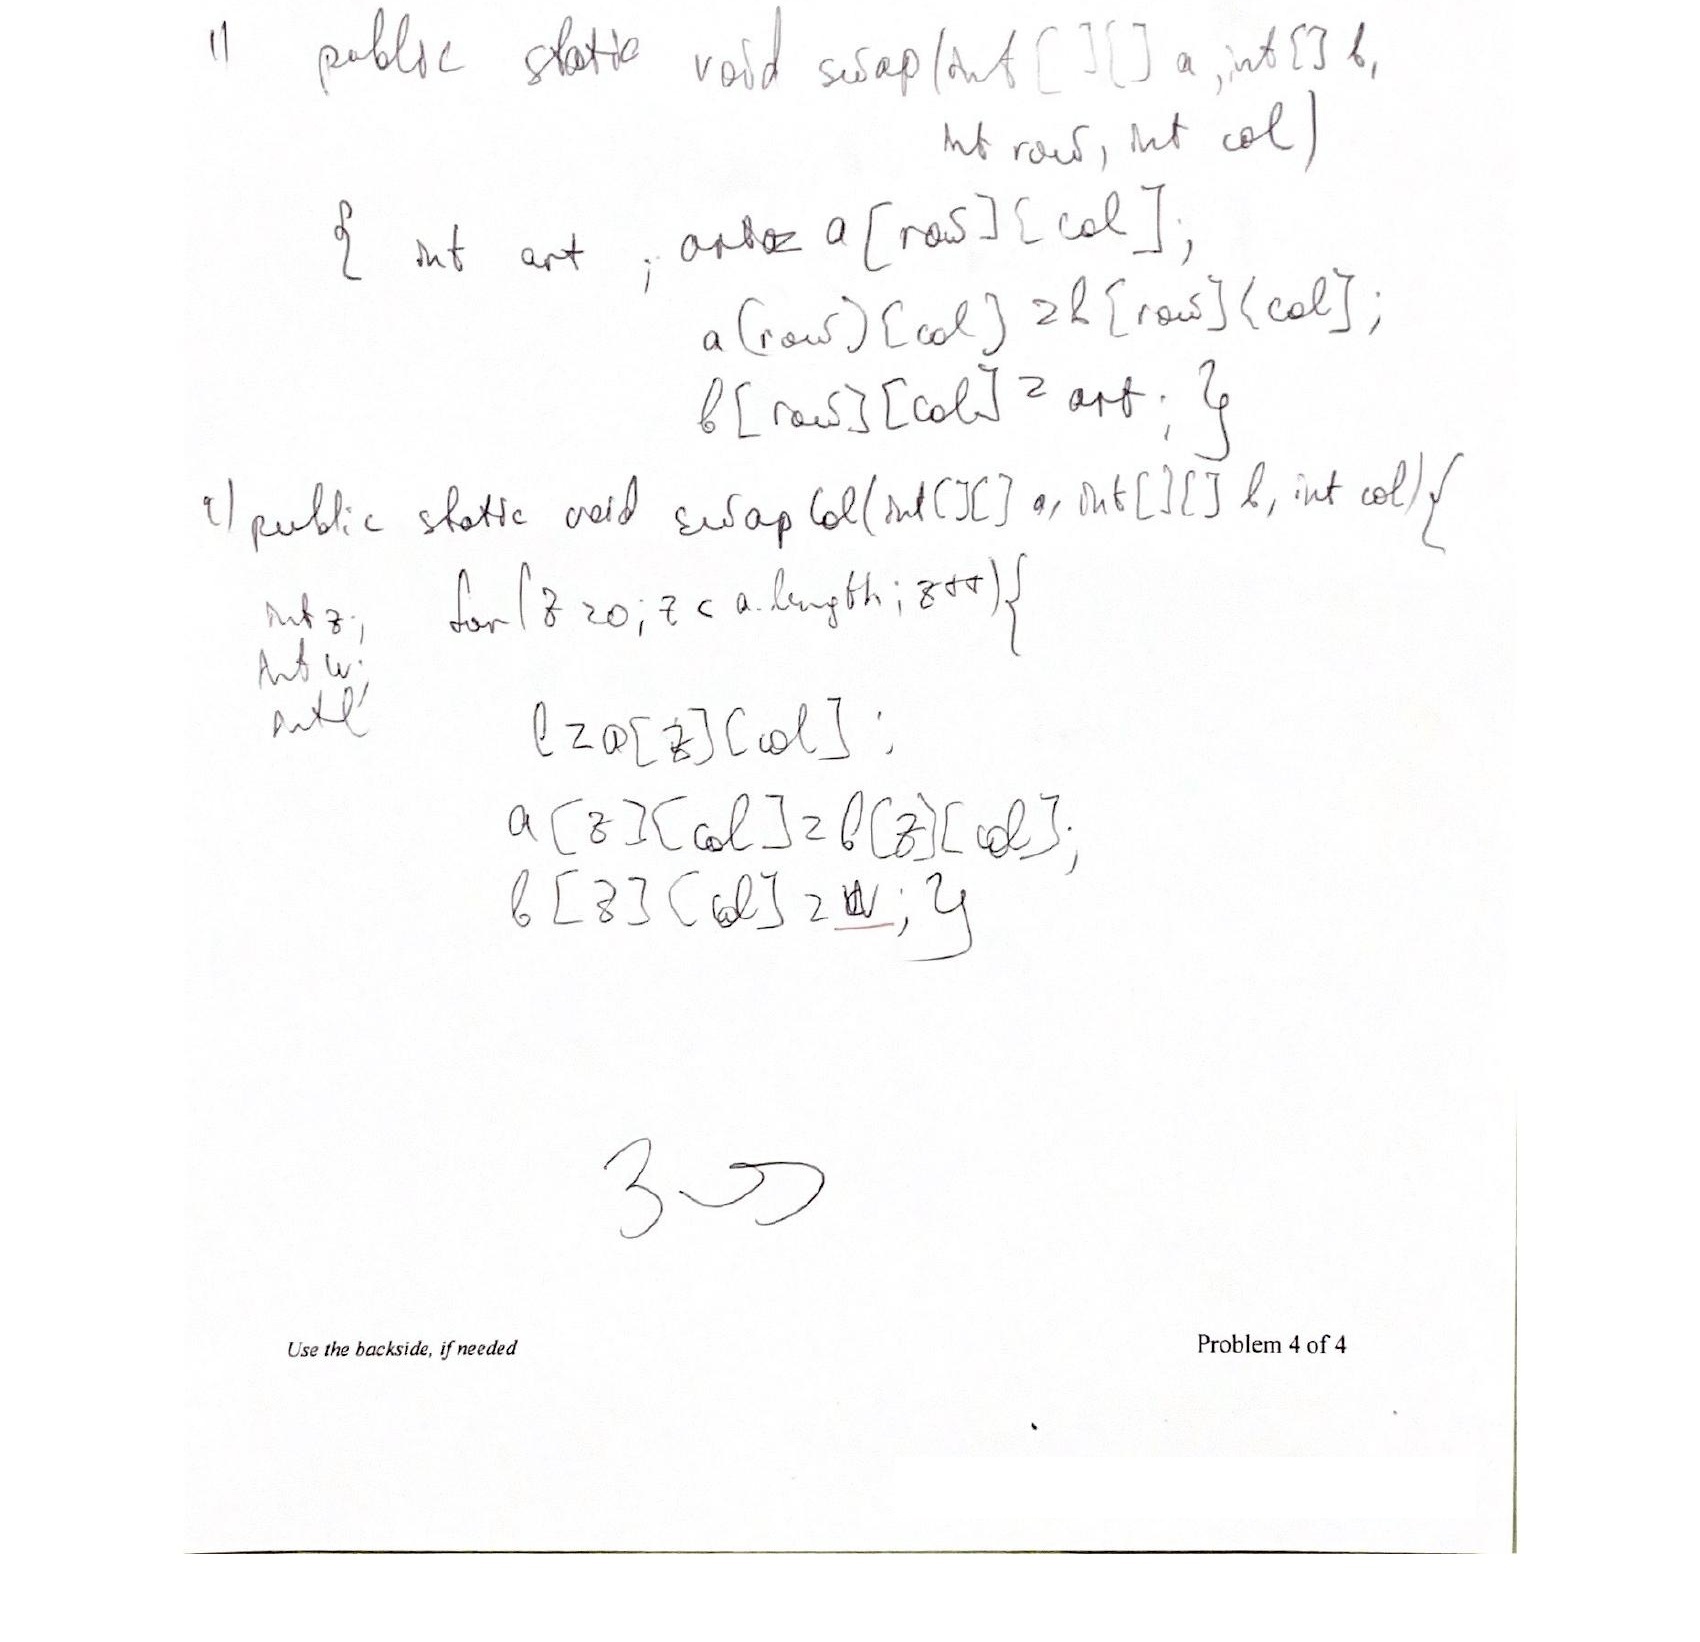 1) public static void swap(int[][] a, int[] b,
int row, int col)
{ int art ; art = a[row][col];
a[row][col] = b[row][col];
b[row][col] = art; }
2) public static void swapCol(int[][] a, int[][] b, int col){
int z; for(z=0; z<a.length; z++){
int w;
int l
l=a[z][col];
a[z][col]=b[z][col];
b[z][col]=w; }
3
Use the backside, if needed Problem 4 of 4